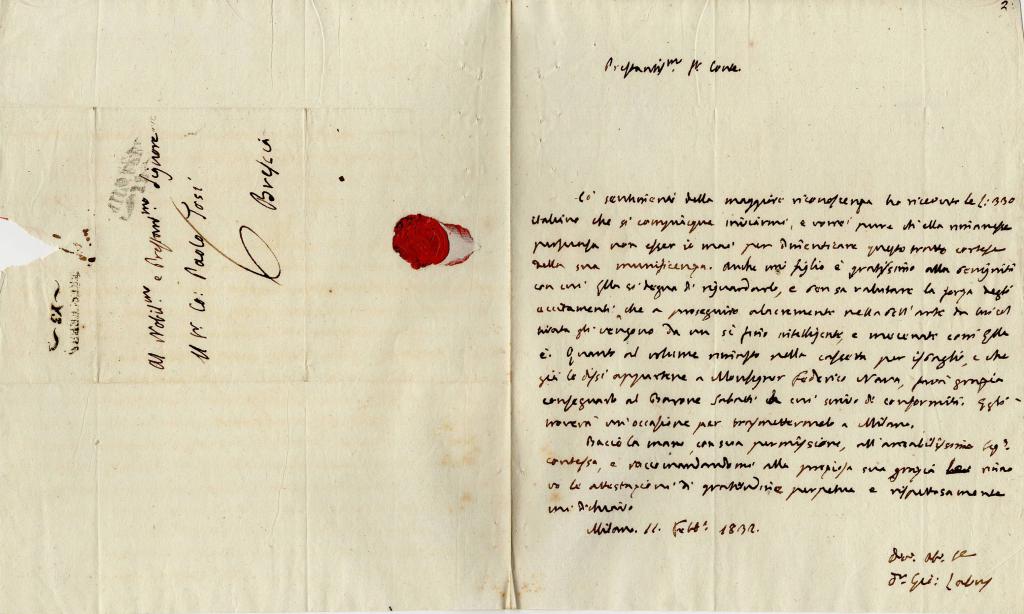 2.
Prestantis.mo Sr Conte.
Co' sentimenti della maggiore riconoscenza ho ricevuto le L: 330
italiane che si compiacque inviarmi, e vorrei pure ch'ella rimanesse
persuasa non esser io mai per dimenticare questo tratto cortese
della sua munificenza. Anche mio figlio è gratissimo alla benignità
con cui Ella si degna di riguardarlo, e sensa valutare la forza degli
eccitamenti che a proseguire alacremente nella bell'arte da lui col
tivata gli vengono da un sì fino intelligente, e mecenate com'Ella
è. Quanto al volume rimasto nella cassetta per isbaglio, e che
già le dissi appartene a Monsignor Federico Nava, farà grazia
consegnarlo al Barone Sabatti cui scrivo di conformità. Egli
troverà un'occasione per trasmettermelo a Milano.
Bacio la mano, con sua permissione, all'amabilissima Sig.a
contessa, e raccomandandomi alla preziosa sua grazia rino
vo le attestazioni di gratitudine perpetua e rispettosamente
mi dichiaro
Milano. 11. Febb.o 1832.
Dev. Ob. Se
Dr Gio: Labus
Al Nobil.mo e Prestan.mo Signore
Il Sr Co: Paolo Tosi
6
Brescia